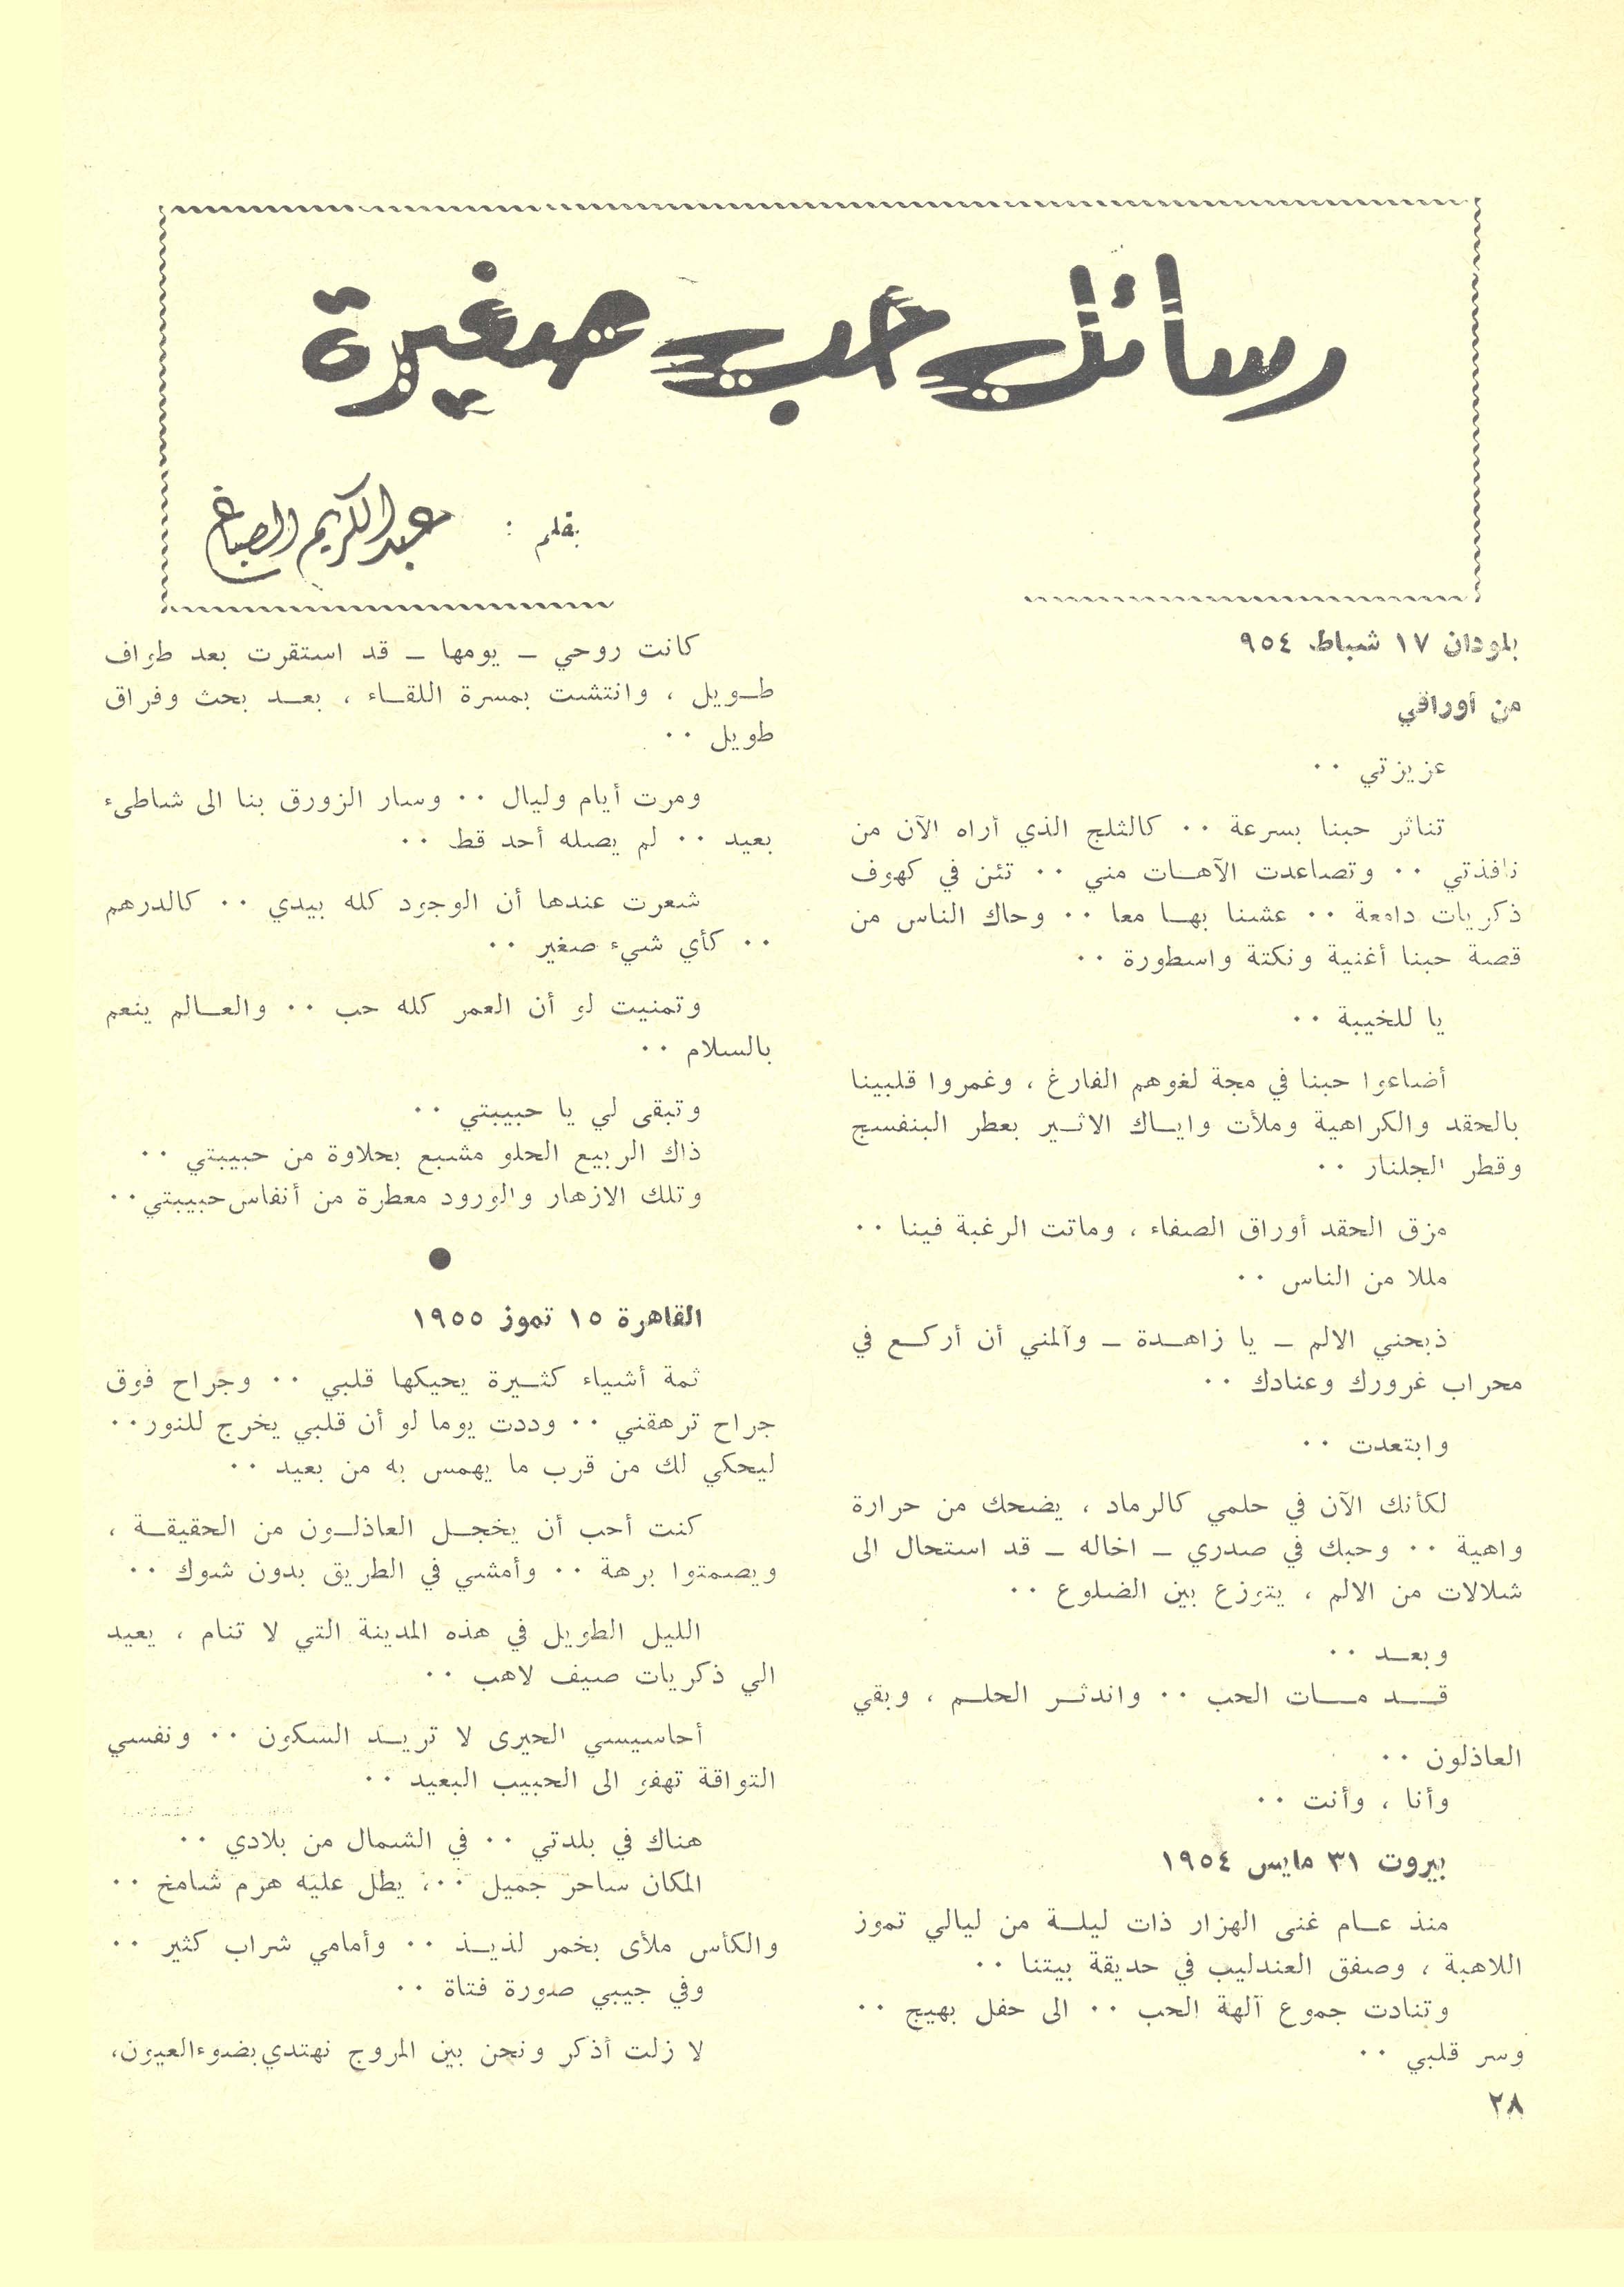 رسائل حب صغيرة
بقلم : عبد الكريم الصباغ
بلودان ١٧ شباط ٩٥٤
من أوراقي
عزيزتي ٠٠
تناثر حبنا بسرعة ٠٠ كالثلج الذي أراه الآن من
نافذتي ٠٠ وتصاعدت الآهات مني ٠٠ تئن في كهوف
ذكريات دامعة ٠٠ عشنا بها معا ٠٠ وحاك الناس من
قصة حبنا أغنية ونكتة واسطورة ٠٠
يا للخيبة ٠٠
أضاعوا حبنا في مجة لغوهم الفارغ ، وغمروا قلبينا
بالحقد والكراهية وملأت واياك الاثير بعطر البنفسج
وقطر الجلنار ٠٠
مزق الحقد أوراق الصفاء ، وماتت الرغبة فينا ٠٠
مللا من الناس ٠٠
ذبحني الالم ــ يا زاهدة ــ وآلمني أن أركع في
محراب غرورك وعنادك ٠٠
وابتعدت ٠٠
لكأنك الآن في حلمي كالرماد ، يضحك من حرارة
واهية ٠٠ وحبك في صدري ــ اخاله ــ قد استحال الى
شلالات من الالم ، يتوزع بين الضلوع ٠٠
وبعد ٠٠
قد مات الحب ٠٠ واندثر الحلم ، وبقي
العاذلون ٠٠
وأنا ، وأنت ٠٠
بيروت ٣١ مايس ١٩٥٤
منذ عام غنى الهزار ذات ليلة من ليالي تموز
اللاهبة ، وصفق العندليب في حديقة بيتنا ٠٠
وتنادت جموع آلهة الحب ٠٠ الى حفل بهيج ٠٠
وسر قلبي ٠٠
كانت روحي ــ يومها ــ قد استقرت بعد طواف
طويل ، وانتشت بمسرة اللقاء ، بعد بحث وفراق
طويل ٠٠
ومرت أيام وليال ٠٠ وسار الزورق بنا الى شاطىء
بعيد ٠٠ لم يصله أحد قط ٠٠
شعرت عندها أن الوجود كله بيدي ٠٠ كالدرهم
٠٠ كأي شيء صغير ٠٠
وتمنيت لو أن العمر كله حب ٠٠ والعالم ينعم
بالسلام ٠٠
وتبقى لي يا حبيبتي ٠٠
ذاك الربيع الحلو مشبع بحلاوة من حبيبتي ٠٠
وتلك الازهار والورود معطرة من أنفاس حبيبتي ٠٠
●
القاهرة ١٥ تموز ١٩٥٥
ثمة أشياء كثيرة يحيكها قلبي ٠٠ وجراح فوق
جراح ترهقني ٠٠ وددت يوما لو أن قلبي يخرج للنور ٠٠
ليحكي لك من قرب ما يهمس به من بعيد ٠٠
كنت أحب أن يخجل العاذلون من الحقيقة ،
ويصمتوا برهة ٠٠ وأمشي في الطريق بدون شوك ٠٠
الليل الطويل في هذه المدينة التي لا تنام ، يعيد
الي ذكريات صيف لاهب ٠٠
أحاسيسي الحيرى لا تريد السكون ٠٠ ونفسي
التواقة تهفو الى الحبيب البعيد ٠٠
هناك في بلدتي ٠٠ في الشمال من بلادي ٠٠
المكان ساحر جميل ٠٠، يطل عليه هرم شامخ ٠٠
والكأس ملأى بخمر لذيذ ٠٠ وأمامي شراب كثير ٠٠
وفي جيبي صورة فتاة ٠٠
لا زلت أذكر ونحن بين المروج نهتدي بضوء العيون،
٢٨